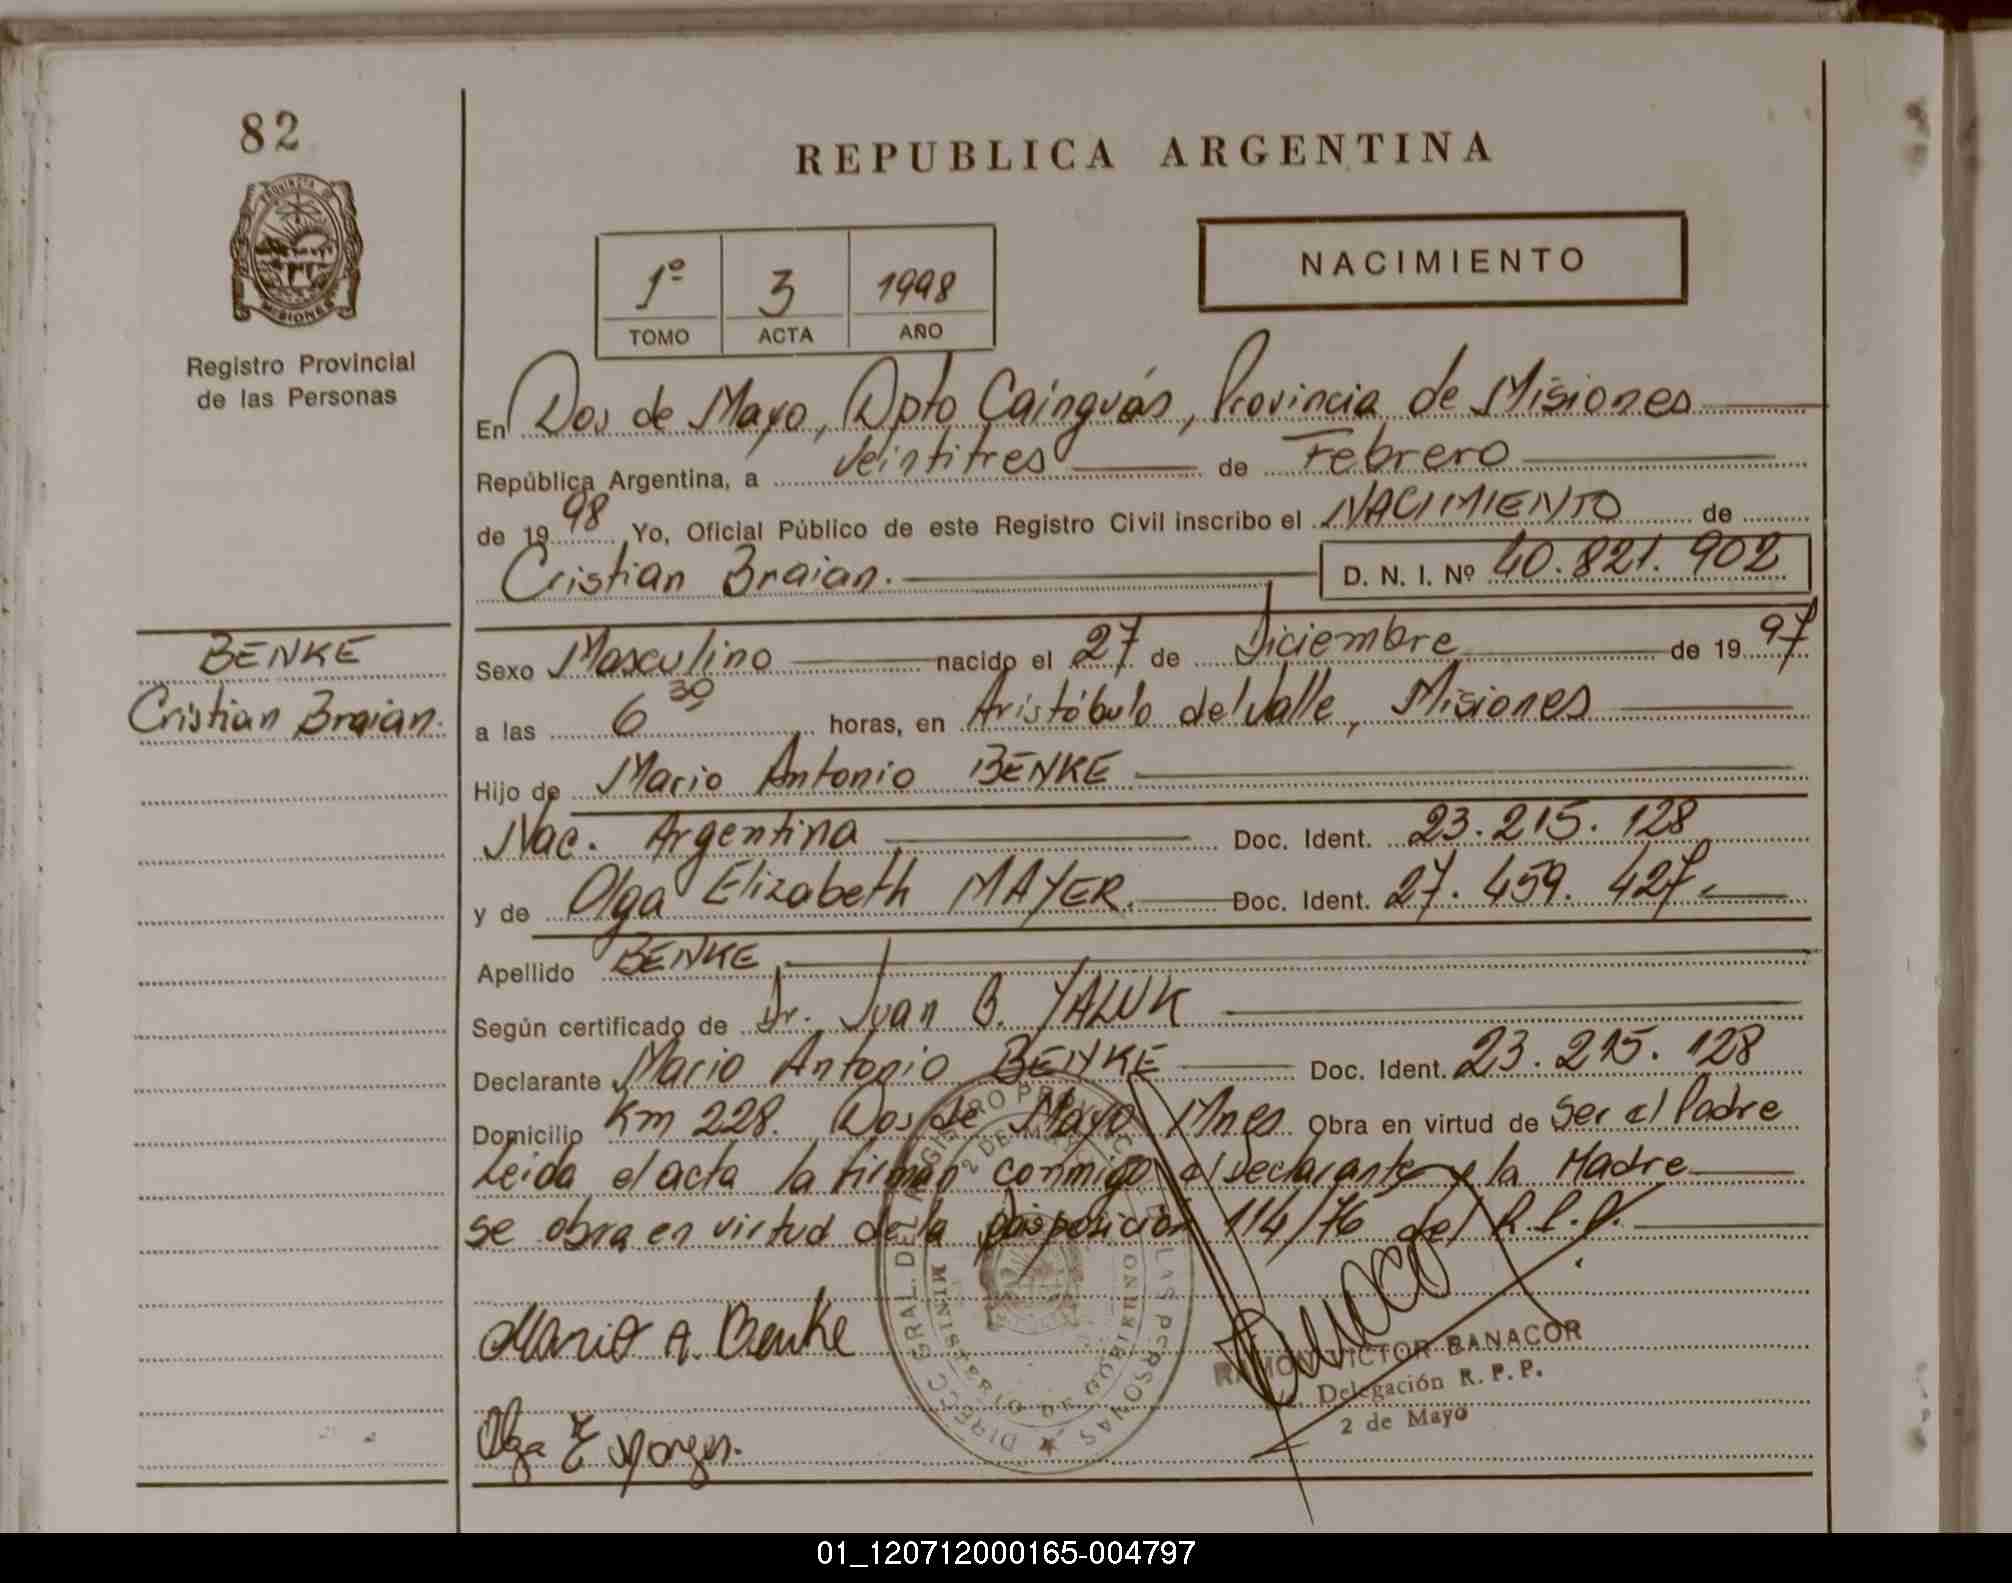 82
REPUBLICA ARGENTINA
PROVINCIA DE
MISIONES
Registro Provincial
de las Personas
1º 3 1998
TOMO ACTA AÑO
NACIMIENTO
En Dos de Mayo, Dpto Cainguás, Provincia de Misiones
República Argentina, a veintitres de Febrero
de 1998 Yo, Oficial Público de este Registro Civil inscribo el NACIMIENTO de
Cristian Braian. D. N. I. Nº 40.821.902
BENKE
Cristian Braian.
Sexo Masculino nacido el 27 de Diciembre de 1997
a las 6 30 horas, en Aristóbulo del Valle, Misiones
Hijo de Mario Antonio BENKE
Nac. Argentina Doc. Ident. 23.215.128
y de Olga Elizabeth MAYER. Doc. Ident. 27.459.427.
Apellido BENKE
Según certificado de Dr. Juan B. YALUK
Declarante Mario Antonio BENKE Doc. Ident. 23.215.128
Domicilio Km 228. Dos de Mayo Mnes Obra en virtud de ser el Padre
Leida el acta la firman conmigo el declarante y la Madre
se obra en virtud de la Disposicion 114/76 del R.P.P.
DIRECC. GRAL. DEL REGISTRO PROVINCIAL DE LAS PERSONAS
MINISTERIO DE GOBIERNO
2 DE MAYO
Mario A. Benke
RAMON VICTOR BANACOR
Delegación R. P. P.
2 de Mayo
Olga E
01_120712000165-004797